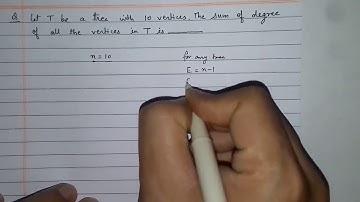 Q let T be a tree with 10 vertices. The sum of degree
of all the vertices in T is ______
n = 10
for any tree
E = n-1